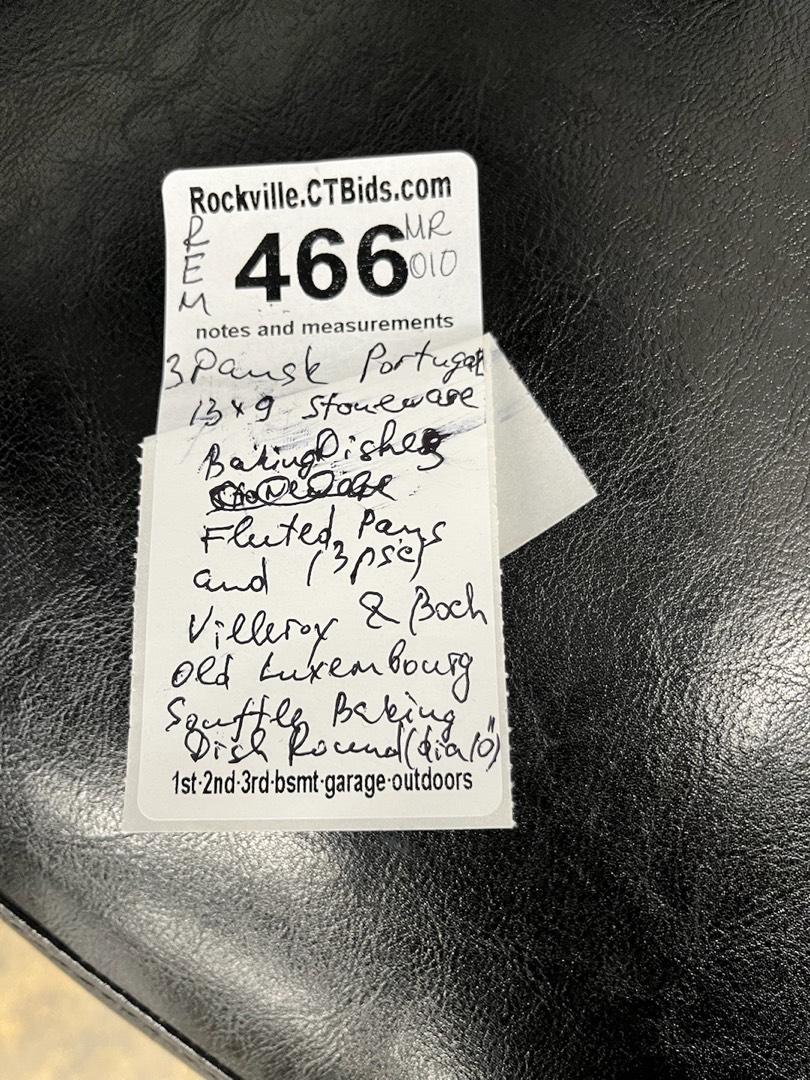 Rockville.CTBids.com
REM 466 MR 010
notes and measurements
3 Pansk Portugal
13 x 9 Stoneware
Baking Dishes
Fluted Pans
and (3 psc)
Villeroy & Boch
Old Luxembourg
Souffle Baking
Dish Round (dia 10")
1st·2nd·3rd·bsmt·garage·outdoors